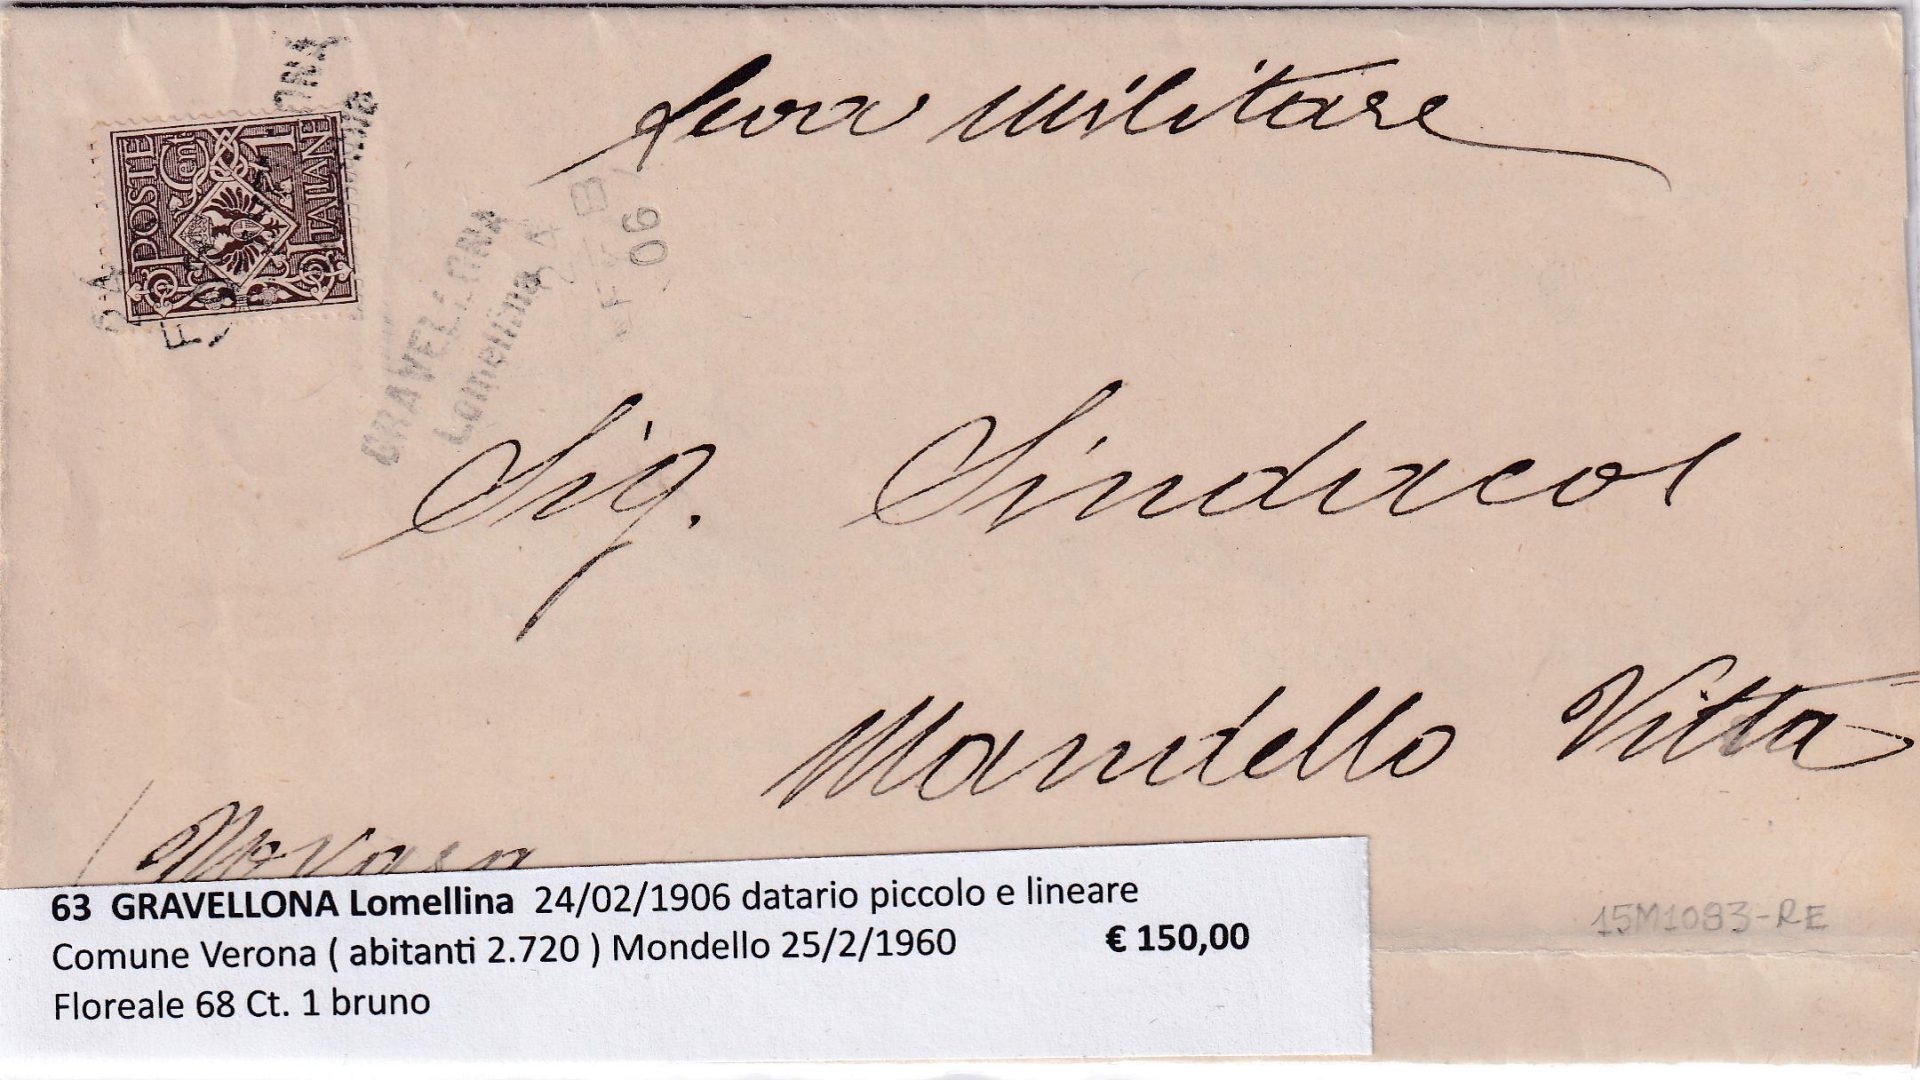 Leva militare
POSTE
Cent 1
ITALIANE
GRAVELLONA
Lomellina
24 FEB
06
Sig. Sindaco
Mandello Vitta
(Novara
15M1083-RE
63 GRAVELLONA Lomellina 24/02/1906 datario piccolo e lineare
Comune Verona ( abitanti 2.720 ) Mondello 25/2/1960 € 150,00
Floreale 68 Ct. 1 bruno